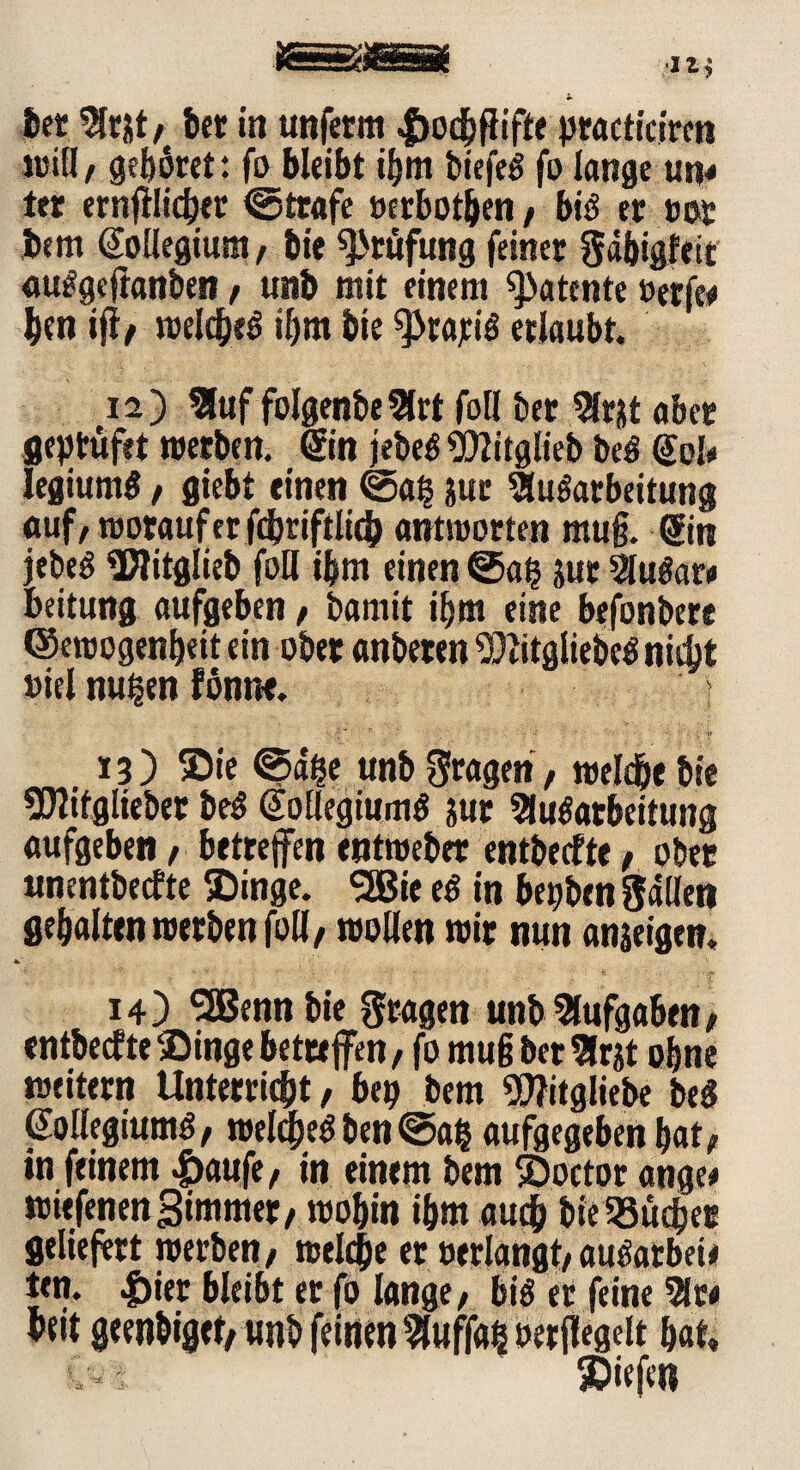 125
der Arzt, der in unserm Hochstifte practiciren
will, gehöret: so bleibt ihm dieses so lange un-
ter ernstlicher Strafe verbothen, bis er vor
dem Collegium, die Prüfung seiner Fähigkeit
ausgestanden, und mit einem Patente verse-
hen ist, welches ihm die Praxis erlaubt.
12) Auf folgende Art soll der Arzt aber
geprüfet werden. Ein jedes Mitglied des Col-
legiums, giebt einen Satz zur Ausarbeitung
auf, worauf er schriftlich antworten muß. Ein
jedes Mitglied soll ihm einen Satz zur Ausar-
beitung aufgeben, damit ihm eine besondere
Gewogenheit ein oder anderen Mitgliedes nicht
viel nutzen könne.
13) Die Sätze und Fragen, welche die
Mitglieder des Collegiums zur Ausarbeitung
aufgeben, betreffen entweder entdeckte, oder
unentdeckte Dinge. Wie es in beyden Fällen
gehalten werden soll, wollen wir nun anzeigen.
14) Wenn die Fragen und Aufgaben,
entdeckte Dinge betreffen, so muß der Arzt ohne
weitern Unterricht, bey dem Mitgliede des
Collegiums, welches den Satz aufgegeben hat,
in seinem Hause, in einem dem Doctor ange-
wiesenen Zimmer, wohin ihm auch die Bücher
geliefert werden, welche er verlangt, ausarbei-
ten. Hier bleibt er so lange, bis er seine Ar-
beit geendiget, und seinen Aufsatz versiegelt hat.
Diesen